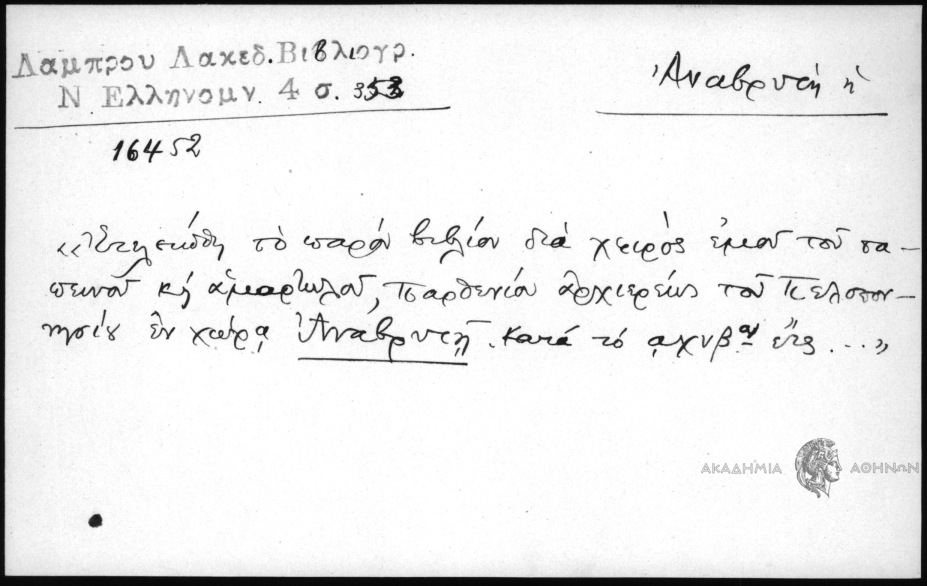 Λαμπρου Λακεδ. Βιβλιογρ.
Ν Ελληνομν. 4 σ. 353
Ἀναβρυτή ἡ
1652
«Ἐτελειώθη τὸ παρόν βιβλίον διά χειρός ἐμοῦ τοῦ τα-
πεινοῦ κὴ ἁμαρτωλοῦ, Παρθενίου ἀρχιερέως τοῦ Πελοπον-
νησίου ἐν χώρᾳ Ἀναβρυτῇ κατά τό ͵αχνβον ἔτος ...»
ΑΚΑΔΗΜΙΑ ΑΘΗΝΩΝ